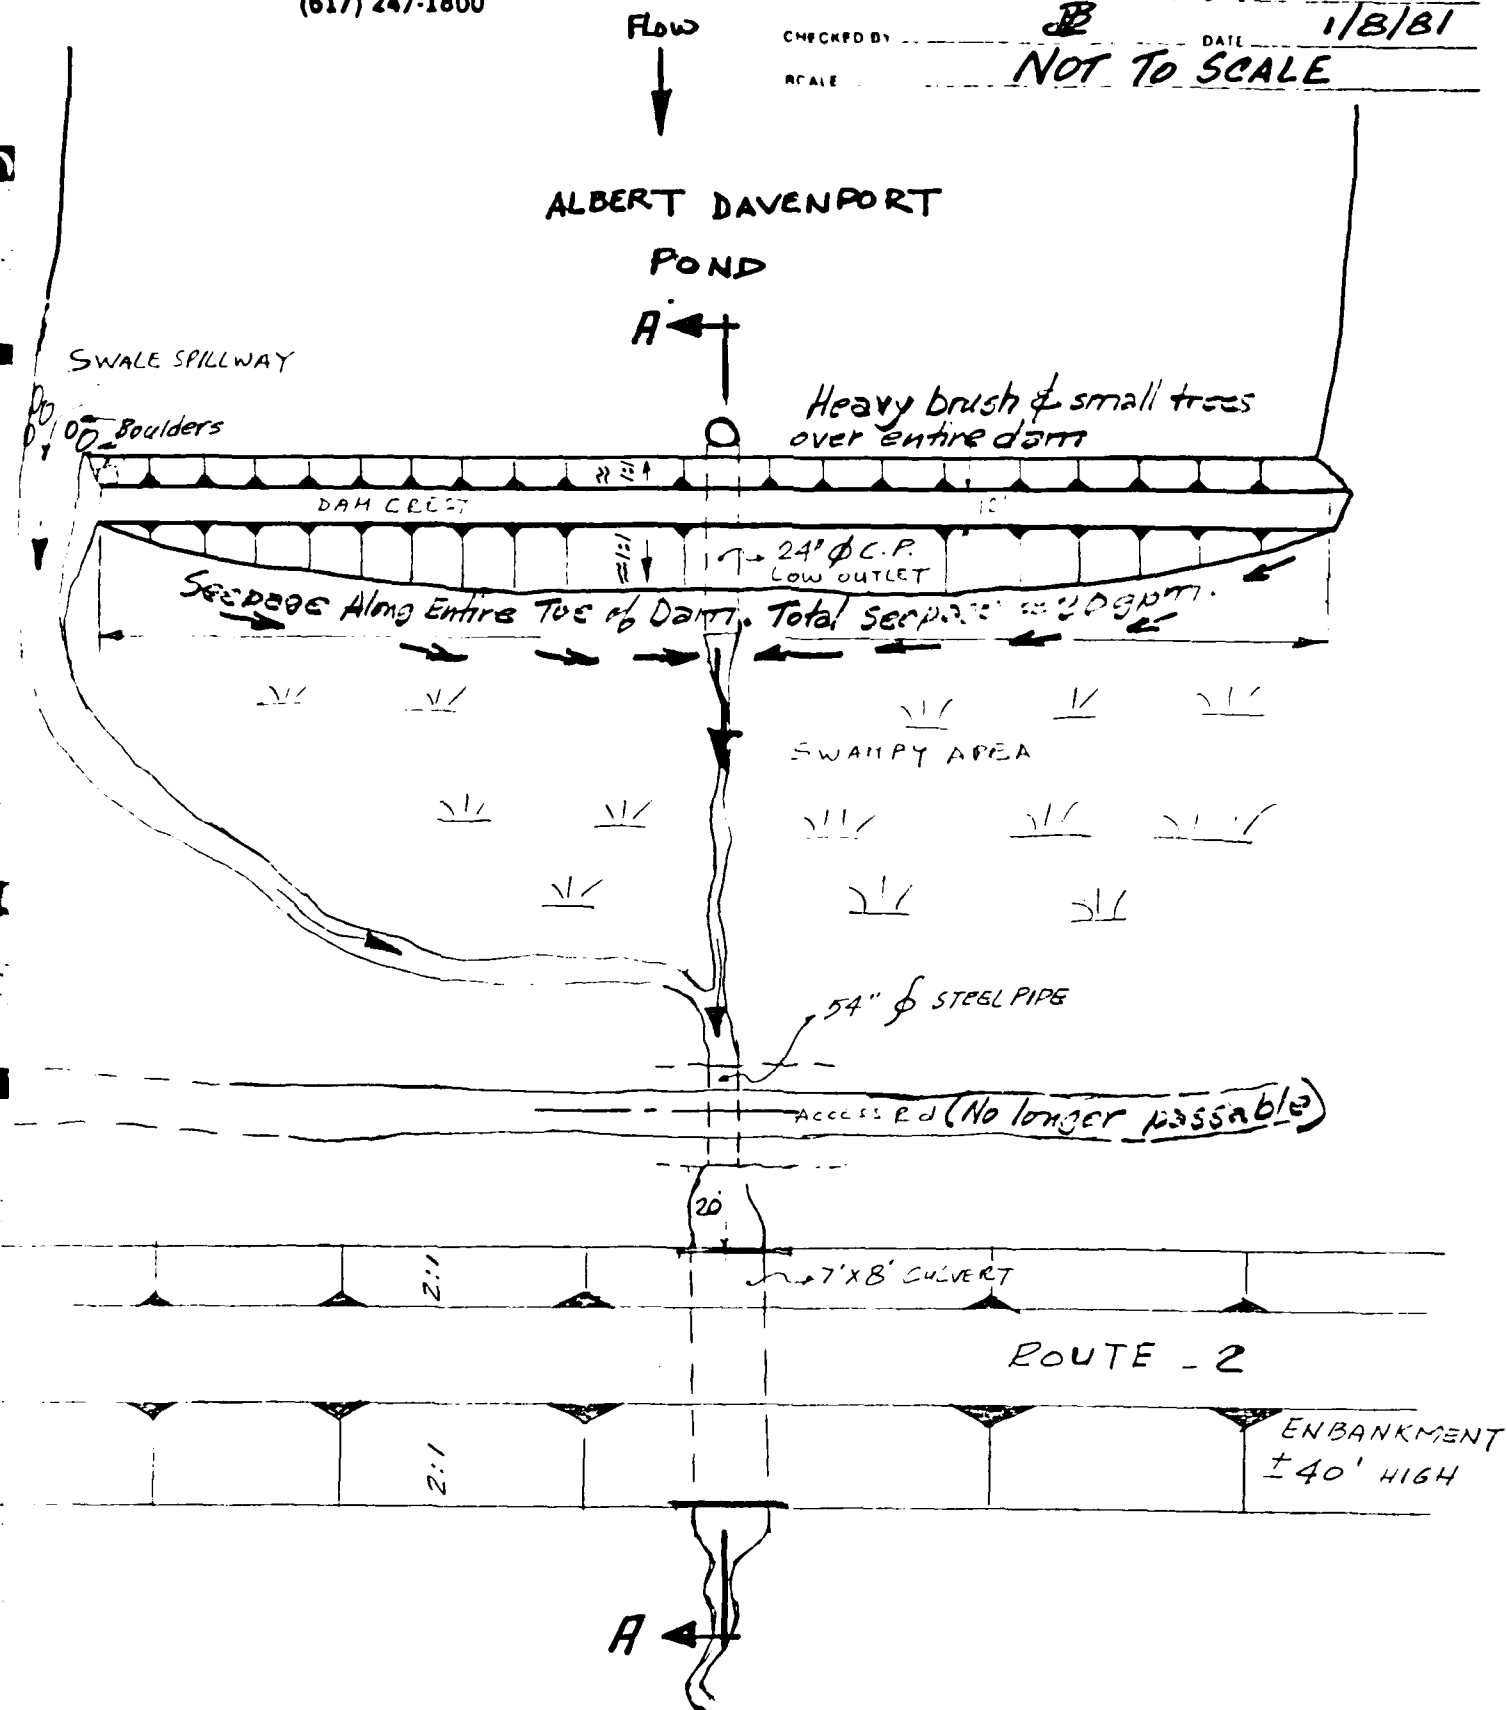 (617) 247-1800
CHECKED BY JB DATE 1/8/81
SCALE NOT TO SCALE
FLOW
ALBERT DAVENPORT
POND
A
SWALE SPILLWAY
Boulders
Heavy brush & small trees
over entire dam
≈ 1:1
DAM CREST
12'
≈ 1:1
24" ∅ C.P.
LOW OUTLET
Seepage Along Entire Toe of Dam. Total seepage gpm.
SWAMPY AREA
54" ∅ STEEL PIPE
ACCESS Rd (No longer passable)
20'
7'X8' CULVERT
2:1
ROUTE - 2
2:1
ENBANKMENT
± 40' HIGH
A